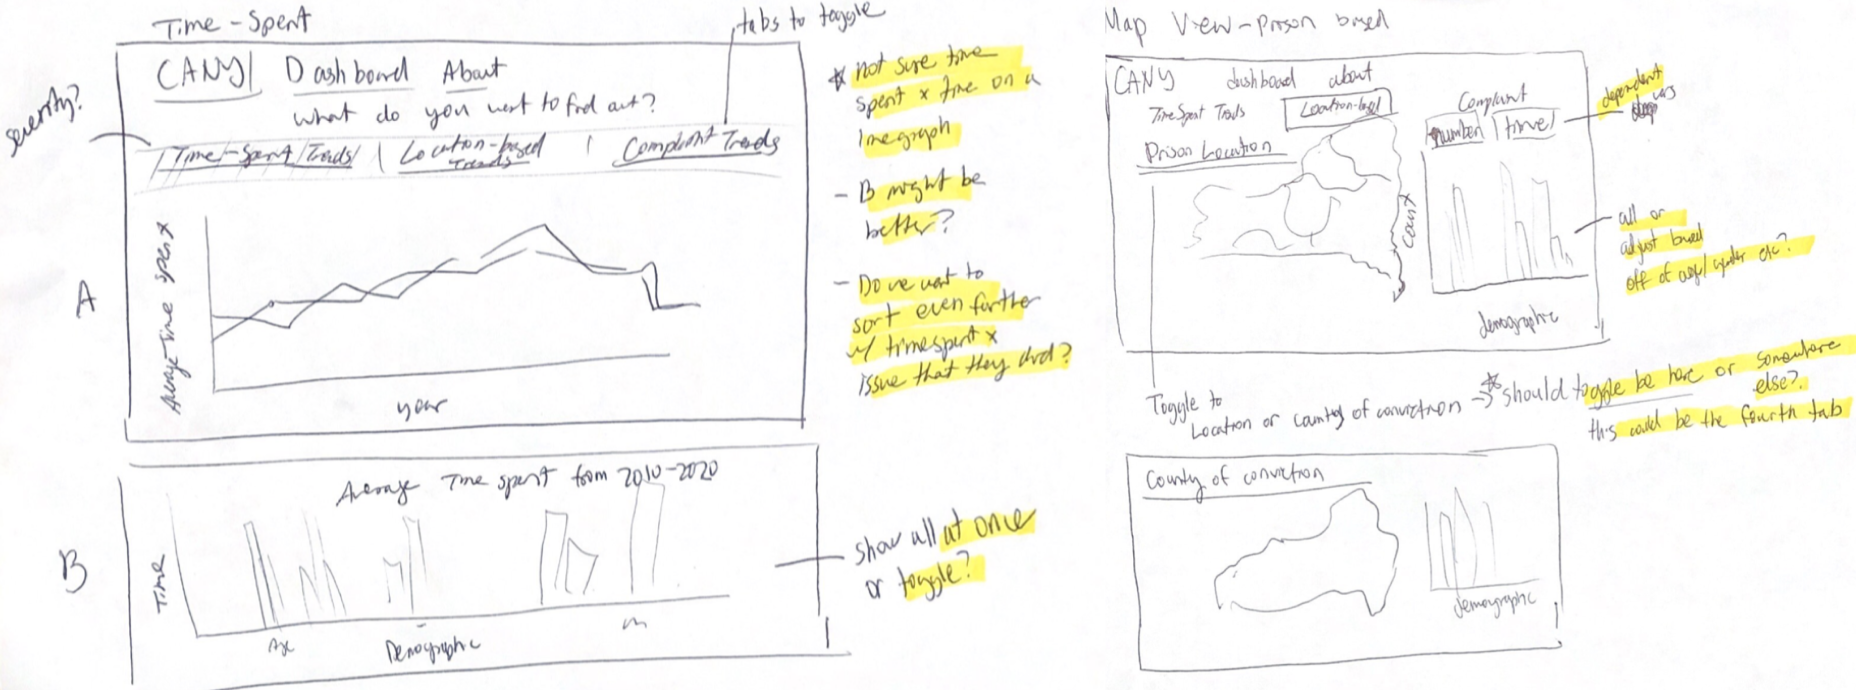 Time-Spent
tabs to toggle
severity?
CANY Dashboard About
what do you want to find out?
Time-Spent Trends | Location-based Trends | Complaint Trends
A
Average time spent
year
* not sure time
spent x time on a
linegraph
- B might be
better?
- Do we want to
sort even further
w/ timespent x
issue that they had?
B
Average Time spent from 2010-2020
Time
Age
Demographic
show all at once
or toggle?
Map View-prison based
CANY dashboard about
Time Spent Trends Location-based
Prison Location
Complaint
number | time
dependent
vars
count
demographic
all or
adjust based
off of age/gender etc?
Toggle to
Location or county of conviction → * should toggle be here or somewhere
else?
this could be the fourth tab
County of conviction
demographic